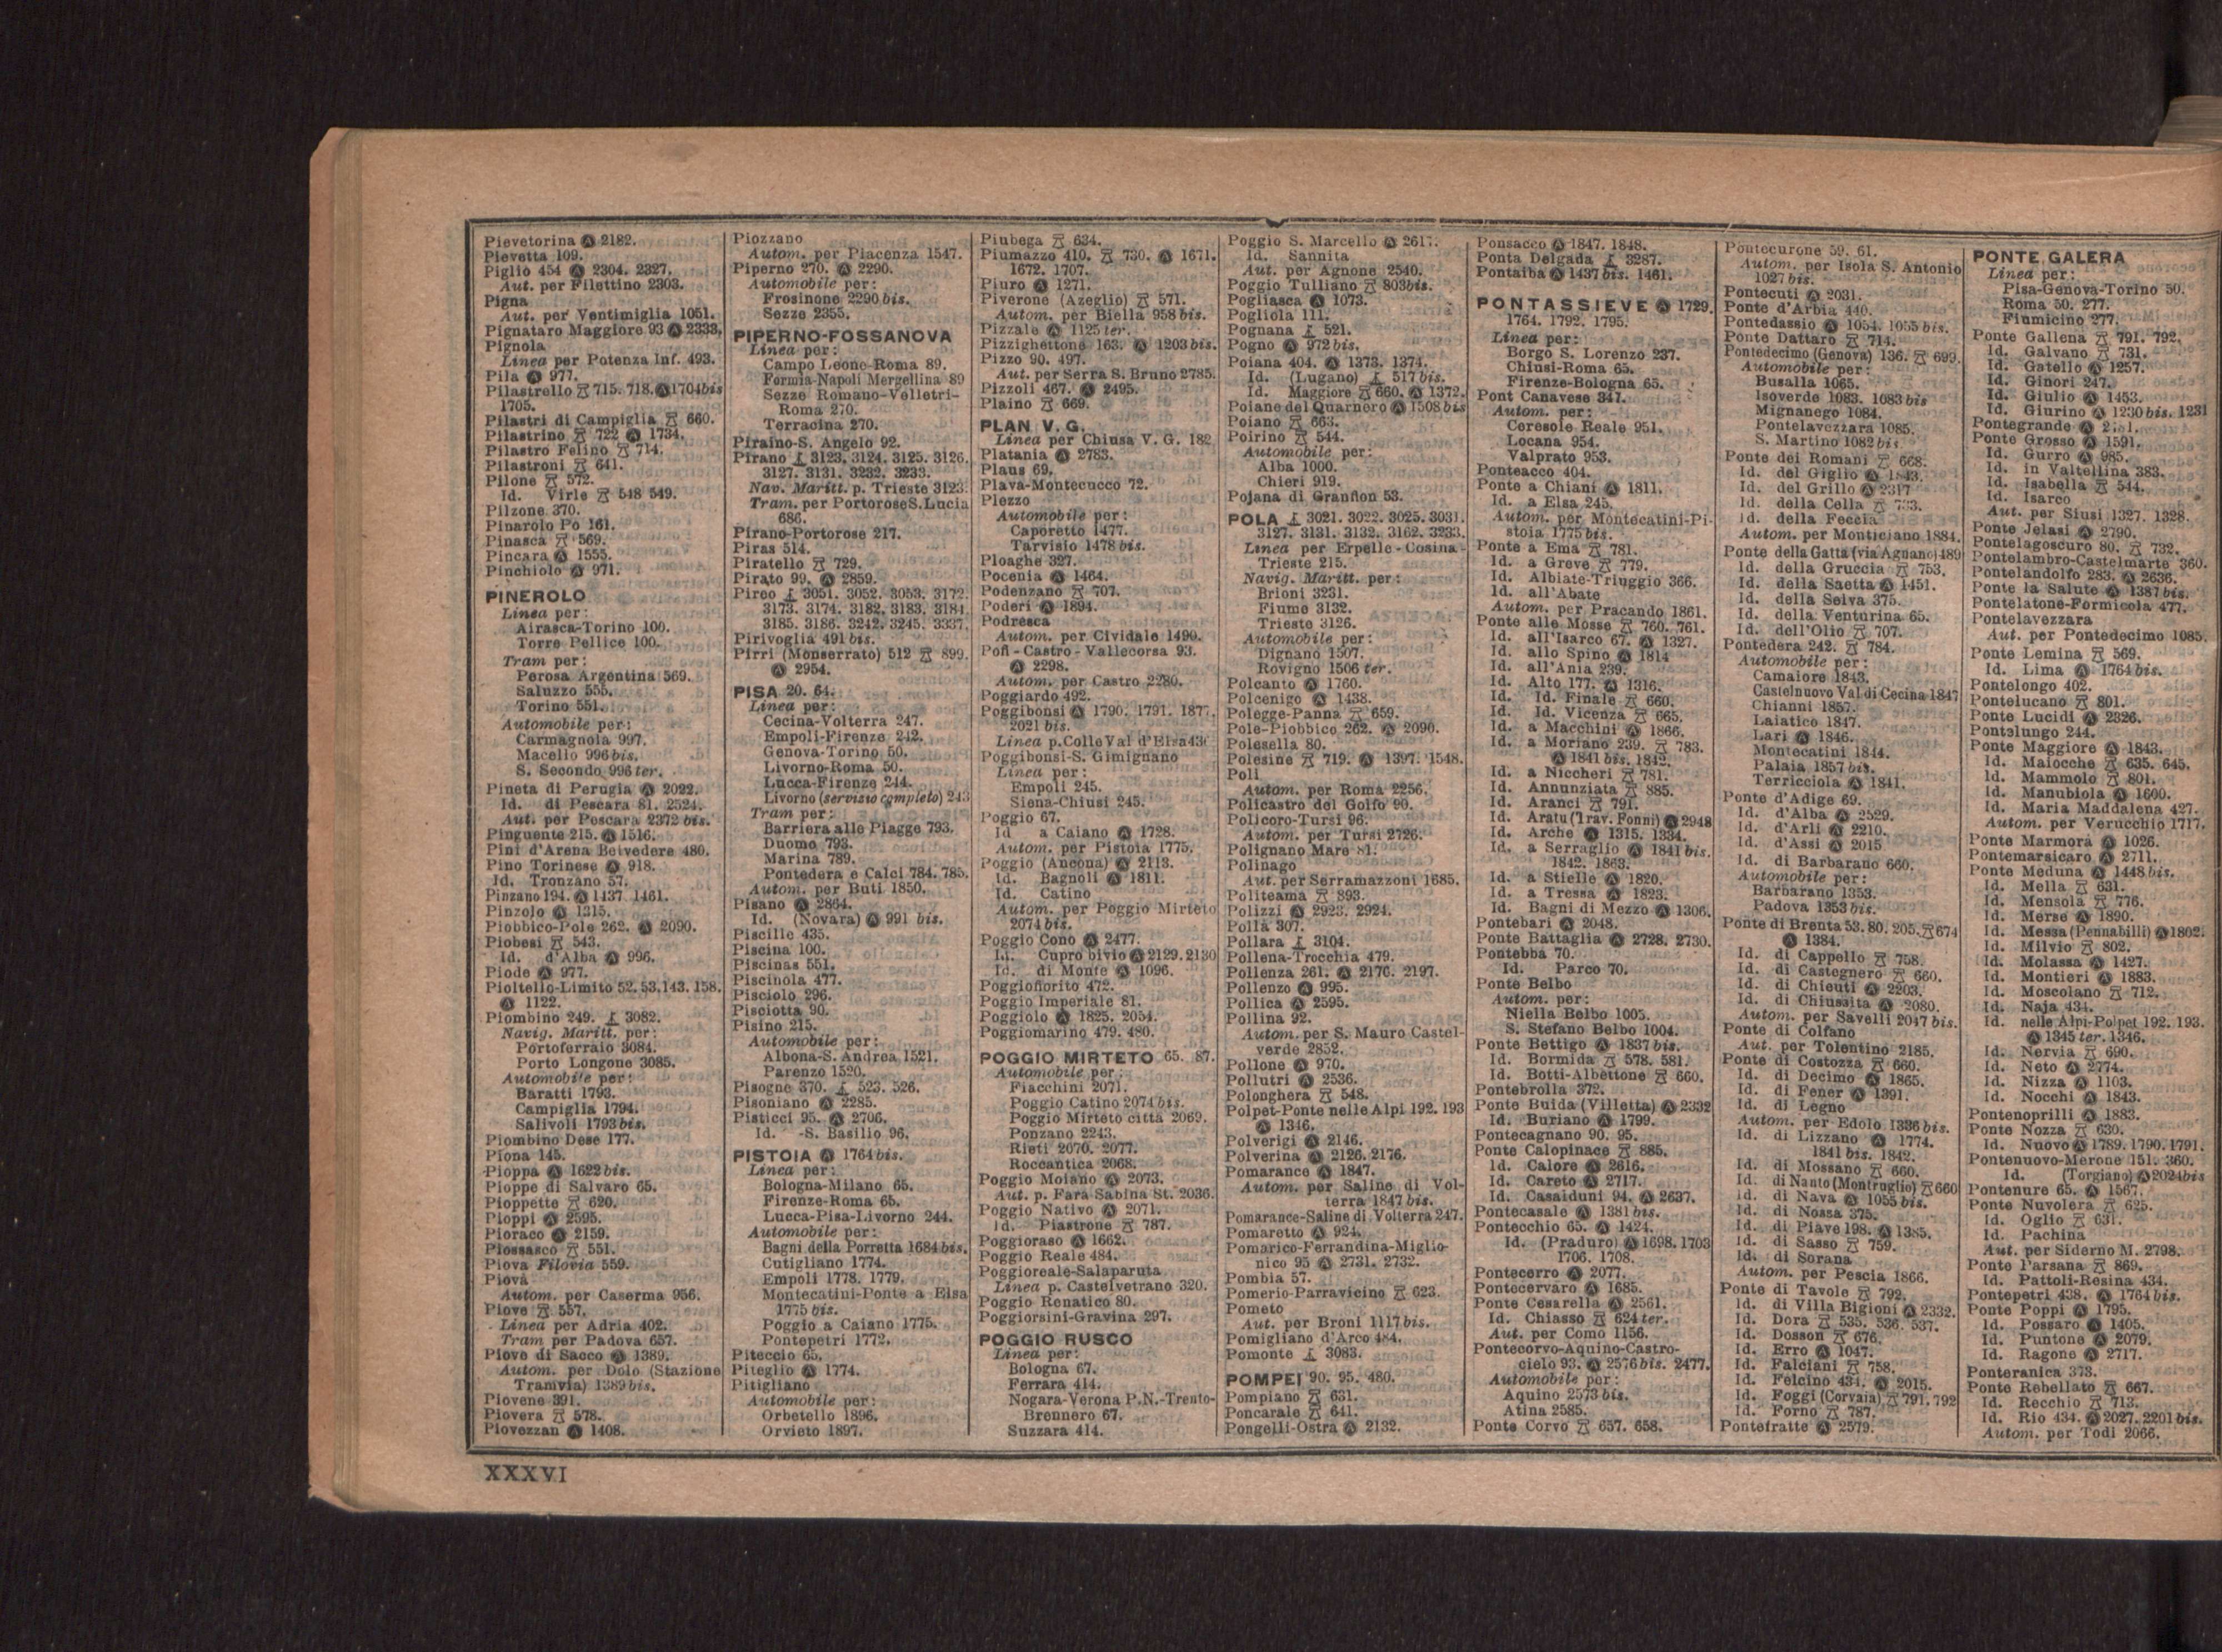 Pievetorina Ⓐ 2182.
Pievetta 109.
Piglio 454 Ⓐ 2304. 2327.
Aut. per Filettino 2303.
Pigna
Aut. per Ventimiglia 1051.
Pignataro Maggiore 93 Ⓐ 2333.
Pignola
Linea per Potenza Inf. 493.
Pila Ⓐ 977.
Pilastrello 715. 718. Ⓐ 1704 bis
1705.
Pilastri di Campiglia 660.
Pilastrino 722 Ⓐ 1734.
Pilastro Felino 714.
Pilastroni 641.
Pilone 572.
Id. Virle 548 549.
Pilzone 370.
Pinarolo Po 161.
Pinasca 569.
Pincara Ⓐ 1555.
Pinchiolo Ⓐ 971.
PINEROLO
Linea per:
Airasca-Torino 100.
Torre Pellice 100.
Tram per:
Perosa Argentina 569.
Saluzzo 555.
Torino 551.
Automobile per:
Carmagnola 997.
Macello 996 bis.
S. Secondo 996 ter.
Pineta di Perugia Ⓐ 2022.
Id. di Pescara 81. 2524.
Aut. per Pescara 2372 bis.
Pinguente 215. Ⓐ 1516.
Pini d'Arena Belvedere 480.
Pino Torinese Ⓐ 918.
Id. Tronzano 57.
Pinzano 194. Ⓐ 1437 1461.
Pinzolo Ⓐ 1315.
Piobbico-Pole 262. Ⓐ 2090.
Piobesi 543.
Id. d'Alba Ⓐ 996.
Piode Ⓐ 977.
Pioltello-Limito 52. 53. 143. 158.
Ⓐ 1122.
Piombino 249. 3082.
Navig. Maritt. per:
Portoferraio 3084.
Porto Longone 3085.
Automobile per:
Baratti 1793.
Campiglia 1794.
Salivoli 1793 bis.
Piombino Dese 177.
Piona 145.
Pioppa Ⓐ 1622 bis.
Pioppe di Salvaro 65.
Pioppette 620.
Pioppi Ⓐ 2595.
Pioraco Ⓐ 2159.
Piossasco 551.
Piova Filovia 559.
Piovà
Autom. per Caserma 956.
Piove 557.
Linea per Adria 402.
Tram per Padova 657.
Piove di Sacco Ⓐ 1389.
Autom. per Dolo (Stazione
Tramvia) 1389 bis.
Piovene 391.
Piovera 578.
Piovezzan Ⓐ 1408.
Piozzano
Autom. per Piacenza 1547.
Piperno 270. Ⓐ 2290.
Automobile per:
Frosinone 2290 bis.
Sezze 2355.
PIPERNO-FOSSANOVA
Linea per:
Campo Leone-Roma 89.
Formia-Napoli Mergellina 89
Sezze Romano-Velletri-
Roma 270.
Terracina 270.
Piraino-S. Angelo 92.
Pirano 3123. 3124. 3125. 3126.
3127. 3131. 3232. 3233.
Nav. Maritt. p. Trieste 3123.
Tram. per Portorose S. Lucia
686.
Pirano-Portorose 217.
Piras 514.
Piratello 729.
Pirato 99. Ⓐ 2859.
Pireo 3051. 3052. 3053. 3172.
3173. 3174. 3182. 3183. 3184.
3185. 3186. 3242. 3245. 3337.
Pirivoglia 491 bis.
Pirri (Monserrato) 512 899.
Ⓐ 2954.
PISA 20. 64.
Linea per:
Cecina-Volterra 247.
Empoli-Firenze 242.
Genova-Torino 50.
Livorno-Roma 50.
Lucca-Firenze 244.
Livorno (servizio completo) 243
Tram per:
Barriera alle Piagge 793.
Duomo 793.
Marina 789.
Pontedera e Calci 784. 785.
Autom. per Buti 1850.
Pisano Ⓐ 2864.
Id. (Novara) Ⓐ 991 bis.
Piscille 435.
Piscina 100.
Piscinas 551.
Piscinola 477.
Pisciolo 296.
Pisciotta 90.
Pisino 215.
Automobile per:
Albona-S. Andrea 1521.
Parenzo 1520.
Pisogne 370. 523. 526.
Pisoniano Ⓐ 2285.
Pisticci 95. Ⓐ 2706.
Id. -S. Basilio 96.
PISTOIA Ⓐ 1764 bis.
Linea per:
Bologna-Milano 65.
Firenze-Roma 65.
Lucca-Pisa-Livorno 244.
Automobile per:
Bagni della Porretta 1684 bis.
Cutigliano 1774.
Empoli 1778. 1779.
Montecatini-Ponte a Elsa
1775 bis.
Poggio a Caiano 1775.
Pontepetri 1772.
Piteccio 65.
Piteglio Ⓐ 1774.
Pitigliano
Automobile per:
Orbetello 1896.
Orvieto 1897.
Piubega 634.
Piumazzo 410. 730. Ⓐ 1671.
1672. 1707.
Piuro Ⓐ 1271.
Piverone (Azeglio) 571.
Autom. per Biella 958 bis.
Pizzale Ⓐ 1125 ter.
Pizzighettone 163. Ⓐ 1203 bis.
Pizzo 90. 497.
Aut. per Serra S. Bruno 2785.
Pizzoli 467. Ⓐ 2495.
Plaino 669.
PLAN V. G.
Linea per Chiusa V. G. 182
Platania Ⓐ 2783.
Plaus 69.
Plava-Montecucco 72.
Plezzo
Automobile per:
Caporetto 1477.
Tarvisio 1478 bis.
Ploaghe 327.
Pocenia Ⓐ 1464.
Podenzano 707.
Poderi Ⓐ 1894.
Podresca
Autom. per Cividale 1490.
Pofi-Castro-Vallecorsa 93.
Ⓐ 2298.
Autom. per Castro 2280.
Poggiardo 492.
Poggibonsi Ⓐ 1790. 1791. 1877.
2021 bis.
Linea p. Colle Val d'Elsa
Poggibonsi-S. Gimignano
Linea per:
Empoli 245.
Siena-Chiusi 245.
Poggio 67.
Id a Caiano Ⓐ 1728.
Autom. per Pistoia 1775.
Poggio (Ancona) Ⓐ 2113.
Id. Bagnoli Ⓐ 1811.
Id. Catino
Autom. per Poggio Mirteto
2074 bis.
Poggio Cono Ⓐ 2477.
Id. Cupro bivio Ⓐ 2129. 2130
Id. di Monte Ⓐ 1096.
Poggiofiorito 472.
Poggio Imperiale 81.
Poggiolo Ⓐ 1825. 2054.
Poggiomarino 479. 480.
POGGIO MIRTETO 65. 87.
Automobile per:
Fiacchini 2071.
Poggio Catino 2074 bis.
Poggio Mirteto città 2069.
Ponzano 2243.
Rieti 2070. 2077.
Roccantica 2068.
Poggio Moiano Ⓐ 2073.
Aut. p. Fara Sabina St. 2036.
Poggio Nativo Ⓐ 2071.
Id. Piastrone 787.
Poggioraso Ⓐ 1662.
Poggio Reale 484.
Poggioreale-Salaparuta
Linea p. Castelvetrano 320.
Poggio Renatico 80.
Poggiorsini-Gravina 297.
POGGIO RUSCO
Linea per:
Bologna 67.
Ferrara 414.
Nogara-Verona P.N.-Trento-
Brennero 67.
Suzzara 414.
Poggio S. Marcello Ⓐ 2617.
Id. Sannita
Aut. per Agnone 2540.
Poggio Tulliano 803 bis.
Pogliasca Ⓐ 1073.
Pogliola 111.
Pognana 521.
Pogno Ⓐ 972 bis.
Poiana 404. Ⓐ 1373. 1374.
Id. (Lugano) 517 bis.
Id. Maggiore 660. Ⓐ 1372.
Poiane del Quarnero Ⓐ 1508 bis
Poiano 663.
Poirino 544.
Automobile per:
Alba 1000.
Chieri 919.
Pojana di Granfion 53.
POLA 3021. 3022. 3025. 3031.
3127. 3131. 3132. 3162. 3233.
Linea per Erpelle-Cosina-
Trieste 215.
Navig. Maritt. per:
Brioni 3231.
Fiume 3132.
Trieste 3126.
Automobile per:
Dignano 1507.
Rovigno 1506 ter.
Polcanto Ⓐ 1760.
Polcenigo Ⓐ 1438.
Polegge-Panna 659.
Pole-Piobbico 262. Ⓐ 2090.
Polesella 80.
Polesine 719. Ⓐ 1397. 1548.
Poli
Autom. per Roma 2256.
Policastro del Golfo 90.
Policoro-Tursi 96.
Autom. per Tursi 2726.
Polignano Mare 81.
Polinago
Aut. per Serramazzoni 1685.
Politeama 893.
Polizzi Ⓐ 2923. 2924.
Polla 307.
Pollara 3104.
Pollena-Trocchia 479.
Pollenza 261. Ⓐ 2176. 2197.
Pollenzo Ⓐ 995.
Pollica Ⓐ 2595.
Pollina 92.
Autom. per S. Mauro Castel-
verde 2852.
Pollone Ⓐ 970.
Pollutri Ⓐ 2536.
Polonghera 548.
Polpet-Ponte nelle Alpi 192. 193
Ⓐ 1346.
Polverigi Ⓐ 2146.
Polverina Ⓐ 2126. 2176.
Pomarance Ⓐ 1847.
Autom. per Saline di Vol-
terra 1847 bis.
Pomarance-Saline di Volterra 247.
Pomaretto Ⓐ 924.
Pomarico-Ferrandina-Miglio-
nico 95 Ⓐ 2731. 2732.
Pombia 57.
Pomerio-Parravicino 623.
Pometo
Aut. per Broni 1117 bis.
Pomigliano d'Arco 484.
Pomonte 3083.
POMPEI 90. 95. 480.
Pompiano 631.
Poncarale 641.
Pongelli-Ostra Ⓐ 2132.
Ponsacco Ⓐ 1847. 1848.
Ponta Delgada 3287.
Pontaiba Ⓐ 1437 bis. 1461.
PONTASSIEVE Ⓐ 1729.
1764. 1792. 1795.
Linea per:
Borgo S. Lorenzo 237.
Chiusi-Roma 65.
Firenze-Bologna 65.
Pont Canavese 347.
Autom. per:
Ceresole Reale 951.
Locana 954.
Valprato 953.
Ponteacco 404.
Ponte a Chiani Ⓐ 1811.
Id. a Elsa 245.
Autom. per Montecatini-Pi-
stoia 1775 bis.
Ponte a Ema 781.
Id. a Greve 779.
Id. Albiate-Triuggio 366.
Id. all'Abate
Autom. per Pracando 1861.
Ponte alle Mosse 760. 761.
Id. all'Isarco 67. Ⓐ 1327.
Id. allo Spino Ⓐ 1814
Id. all'Ania 239.
Id. Alto 177. Ⓐ 1316.
Id. Id. Finale 660.
Id. Id. Vicenza 665.
Id. a Macchini Ⓐ 1866.
Id. a Moriano 239. 783.
Ⓐ 1841 bis. 1842.
Id. a Niccheri 781.
Id. Annunziata 885.
Id. Aranci 791.
Id. Aratu (Trav. Fonni) Ⓐ 2948
Id. Arche Ⓐ 1315. 1334.
Id. a Serraglio Ⓐ 1841 bis.
1842. 1863.
Id. a Stielle Ⓐ 1820.
Id. a Tressa Ⓐ 1823.
Id. Bagni di Mezzo Ⓐ 1306.
Pontebari Ⓐ 2048.
Ponte Battaglia Ⓐ 2728. 2730.
Pontebba 70.
Id. Parco 70.
Ponte Belbo
Autom. per:
Niella Belbo 1005.
S. Stefano Belbo 1004.
Ponte Bettigo Ⓐ 1837 bis.
Id. Bormida 578. 581.
Id. Botti-Albettone 660.
Pontebrolla 372.
Ponte Buida (Villetta) Ⓐ 2332
Id. Buriano Ⓐ 1799.
Pontecagnano 90. 95.
Ponte Calopinace 885.
Id. Calore Ⓐ 2616.
Id. Careto Ⓐ 2717.
Id. Casalduni 94. Ⓐ 2637.
Pontecasale Ⓐ 1381 bis.
Pontecchio 65. Ⓐ 1424.
Id. (Praduro) Ⓐ 1698. 1703
1706. 1708.
Pontecerro Ⓐ 2077.
Pontecervaro Ⓐ 1685.
Ponte Cesarella Ⓐ 2561.
Id. Chiasso 624 ter.
Aut. per Como 1156.
Pontecorvo-Aquino-Castro-
cielo 93. Ⓐ 2576 bis. 2477.
Automobile per:
Aquino 2573 bis.
Atina 2585.
Ponte Corvo 657. 658.
Pontecurone 59. 61.
Autom. per Isola S. Antonio
1027 bis.
Pontecuti Ⓐ 2031.
Ponte d'Arbia 440.
Pontedassio Ⓐ 1054. 1055 bis.
Ponte Dattaro 714.
Pontedecimo (Genova) 136. 699.
Automobile per:
Busalla 1065.
Isoverde 1083. 1083 bis
Mignanego 1084.
Pontelavezzara 1085.
S. Martino 1082 bis
Ponte dei Romani 668.
Id. del Giglio Ⓐ 1843.
Id. del Grillo Ⓐ 2317
Id. della Cella 733.
Id. della Feccia
Autom. per Monticiano 1884.
Ponte della Gatta (via Agnano) 489
Id. della Gruccia 753.
Id. della Saetta Ⓐ 1451.
Id. della Selva 375.
Id. della Venturina 65.
Id. dell'Olio 707.
Pontedera 242. 784.
Automobile per:
Camaiore 1843.
Castelnuovo Val di Cecina 1847
Chianni 1857.
Laiatico 1847.
Lari Ⓐ 1846.
Montecatini 1844.
Palaia 1857 bis.
Terricciola Ⓐ 1841.
Ponte d'Adige 69.
Id. d'Alba Ⓐ 2529.
Id. d'Arli Ⓐ 2210.
Id. d'Assi Ⓐ 2015
Id. di Barbarano 660.
Automobile per:
Barbarano 1353.
Padova 1353 bis.
Ponte di Brenta 53. 80. 205. 674
Ⓐ 1384.
Id. di Cappello 758.
Id. di Castegnero 660.
Id. di Chieuti Ⓐ 2203.
Id. di Chiussita Ⓐ 2080.
Autom. per Savelli 2047 bis.
Ponte di Colfano
Aut. per Tolentino 2185.
Ponte di Costozza 660.
Id. di Decimo Ⓐ 1865.
Id. di Fener Ⓐ 1391.
Id. di Legno
Autom. per Edolo 1336 bis.
Id. di Lizzano Ⓐ 1774.
1841 bis. 1842.
Id. di Mossano 660.
Id. di Nanto (Montruglio) 660
Id. di Nava Ⓐ 1055 bis.
Id. di Nossa 375.
Id. di Piave 198. Ⓐ 1385.
Id. di Sasso 759.
Id. di Sorana
Autom. per Pescia 1866.
Ponte di Tavole 792.
Id. di Villa Bigioni Ⓐ 2332.
Id. Dora 535. 536. 537.
Id. Dosson 676.
Id. Erro Ⓐ 1047.
Id. Falciani 758.
Id. Felcino 434. Ⓐ 2015.
Id. Foggi (Corvaia) 791. 792
Id. Forno 787.
Pontefratte Ⓐ 2579.
PONTE GALERA
Linea per:
Pisa-Genova-Torino 50.
Roma 50. 277.
Fiumicino 277.
Ponte Gallena 791. 792.
Id. Galvano 731.
Id. Gatello Ⓐ 1257.
Id. Ginori 247.
Id. Giulio Ⓐ 1453.
Id. Giurino Ⓐ 1230 bis. 1231
Pontegrande Ⓐ
Ponte Grosso Ⓐ 1591.
Id. Gurro Ⓐ 985.
Id. in Valtellina 383.
Id. Isabella 544.
Id. Isarco
Aut. per Siusi 1327. 1328.
Ponte Jelasi Ⓐ 2790.
Pontelagoscuro 80. 732.
Pontelambro-Castelmarte 360.
Pontelandolfo 283. Ⓐ 2636.
Ponte la Salute Ⓐ 1387 bis.
Pontelatone-Formicola 477.
Pontelavezzara
Aut. per Pontedecimo 1085.
Ponte Lemina 569.
Id. Lima Ⓐ 1764 bis.
Pontelongo 402.
Pontelucano 801.
Ponte Lucidi Ⓐ 2326.
Pontelungo 244.
Ponte Maggiore Ⓐ 1843.
Id. Maiocche 635. 645.
Id. Mammolo 801.
Id. Manubiola Ⓐ 1600.
Id. Maria Maddalena 427.
Autom. per Verucchio 1717.
Ponte Marmora Ⓐ 1026.
Pontemarsicaro Ⓐ 2711.
Ponte Meduna Ⓐ 1448 bis.
Id. Mella 631.
Id. Mensola 776.
Id. Merse Ⓐ 1890.
Id. Messa (Pennabilli) Ⓐ 1802.
Id. Milvio 802.
Id. Molassa Ⓐ 1427.
Id. Montieri Ⓐ 1883.
Id. Moscolano 712.
Id. Naja 434.
Id. nelle Alpi-Polpet 192. 193.
Ⓐ 1345 ter. 1346.
Id. Nervia 690.
Id. Neto Ⓐ 2774.
Id. Nizza Ⓐ 1103.
Id. Nocchi Ⓐ 1843.
Pontenoprilli Ⓐ 1883.
Ponte Nozza 630.
Id. Nuovo Ⓐ 1789. 1790. 1791.
Pontenuovo-Merone 151. 360.
Id. (Torgiano) Ⓐ 2024 bis
Pontenure 65. Ⓐ 1567.
Ponte Nuvolera 625.
Id. Oglio 631.
Id. Pachina
Aut. per Siderno M. 2798.
Ponte Parsana 869.
Id. Pattoli-Resina 434.
Pontepetri 438. Ⓐ 1764 bis.
Ponte Poppi Ⓐ 1795.
Id. Possaro Ⓐ 1405.
Id. Puntone Ⓐ 2079.
Id. Ragone Ⓐ 2717.
Ponteranica 373.
Ponte Rebellato 667.
Id. Recchio 713.
Id. Rio 434. Ⓐ 2027. 2201 bis.
Autom. per Todi 2066.
XXXVI